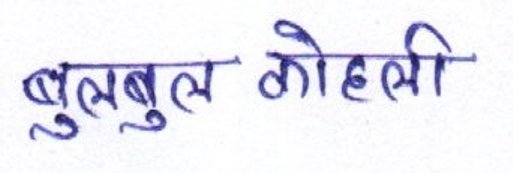 बुलबुल कोहली